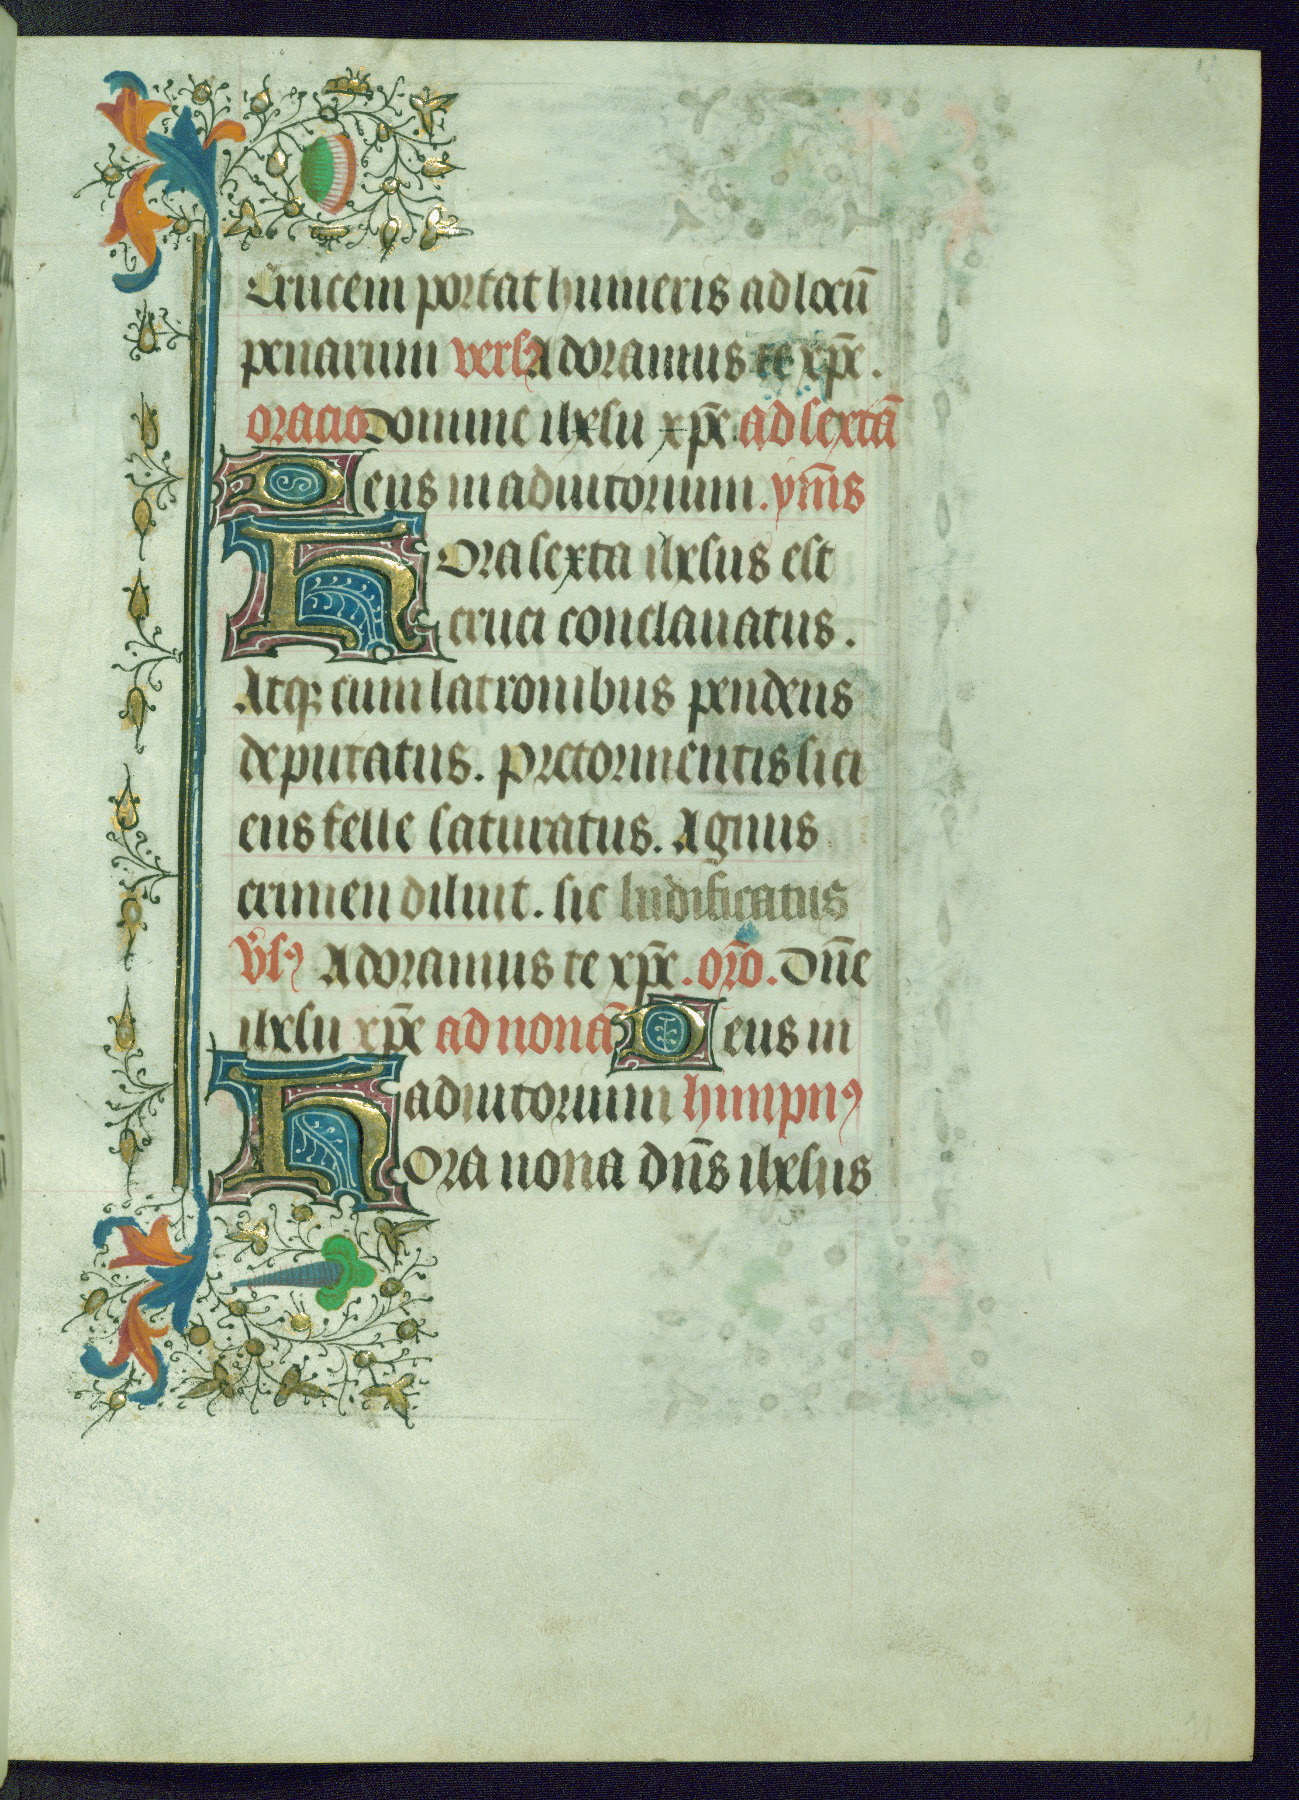 Crucem portat humeris ad locū
penarum vers⁹ Adoramus te xp̄e.
oracio Domine ihesu xp̄e ad sextā
Deus in adiutorium. ym̄s
Hora sexta ihesus est
cruci conclauatus.
Atq; cum latronibus pendens
deputatus. Pre tormentis sici
ens felle saturatus. Agnus
crimen diluit. sic ludificatus
v̄s⁹ Adoramus te xp̄e. or̄o. Dn̄e
ihesu xp̄e ad nonā Deus in
adiutorium himpn⁹
Hora nona dn̄s ihesus